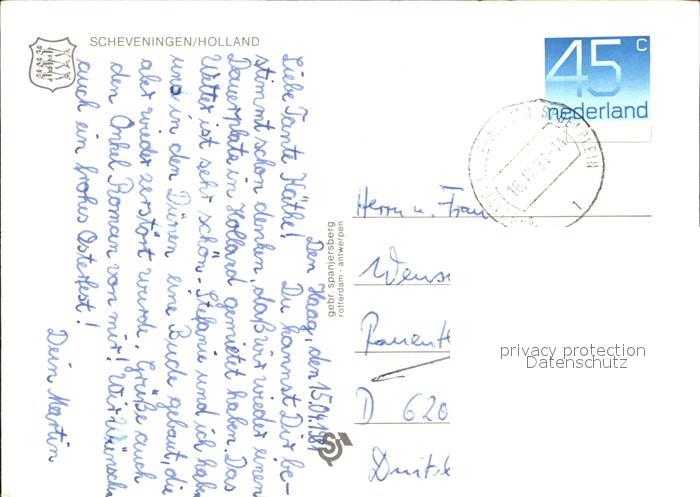 SCHEVENINGEN/HOLLAND
Den Haag, den 15.04.1981
Liebe Tante Käthe! Du kannst Dir be-
stimmt schon denken, daß wir wieder einen
Dauerplatz in Holland gemietet haben. Das
Wetter ist sehr schön. Stefanie und ich haben
uns in den Dünen eine Bude gebaut, die
aber wieder zerstört wurde. Grüße auch
den Onkel Roman von mir! Wir wünschen
auch ein frohes Osterfest!
Dein Martin
gebr. spanjersberg
rotterdam - antwerpen
45 c
nederland
Herrn u. Frau
D 620
privacy protection
Datenschutz